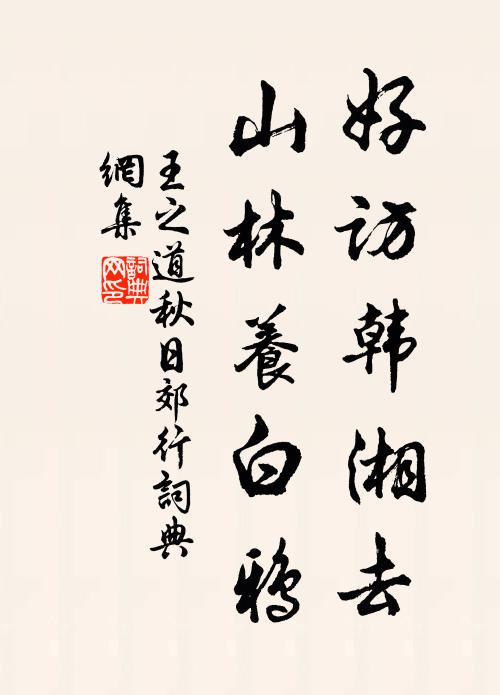 好访韩湘去
山林養白鸦
王之道秋日郊行詞典
網集
詞典
网印